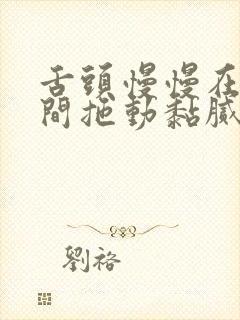 舌頭慢慢在
間拖動黏膩
劉裕